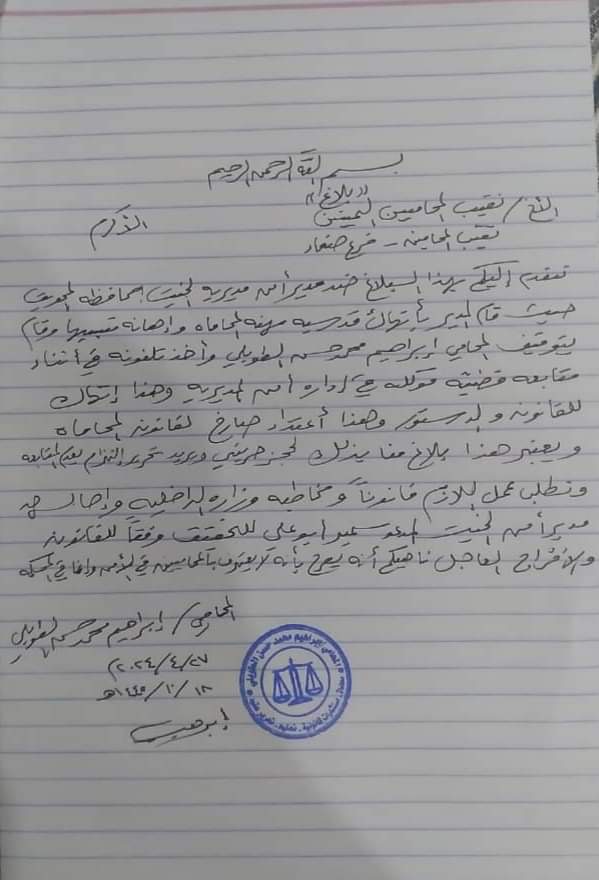 بسم الله الرحمن الرحيم
"بلاغ"
الأخ/ نقيب المحامين اليمنيين الأكرم
نقيب المحامين - فرع صنعاء
نتقدم إليكم بهذا البلاغ ضد مدير أمن مديرية الخبت بمحافظة المحويت
حيث قام المدير بأنتهاك قدسيه مهنه المحاماه وإهانة منتسبيها وقام
بتوقيف المحامي إبراهيم محمد حسن الطويلي وأخذ تلفونه في أثناء
متابعه قضية موكله في إداره أمن المديريه وهذا إنتهاك
للقانون والدستور وهذا أعتداء صارخ لقانون المحاماه
ويعتبر هذا بلاغ منا بذلك لحجز حريتي ويريد تحرير إلتزام بعدم المتابعه
ونطلب عمل اللازم قانوناً ومخاطبه وزاره الداخليه وإحاله
مدير أمن الخبت المدعو سمير ابو علي للتحقيق وفقاً للقانون
والإفراج العاجل ناهيكم أنه يصرح بأنه لا يعترف بالمحاميين في الأمن وإنما في المحكمه
المحامي/ إبراهيم محمد حسن الطويلي
٢٠٢٤/٤/٢٧م
١٨/١٠/١٤٤٥هـ
إبراهيم
المحامي إبراهيم محمد حسن الطويلي